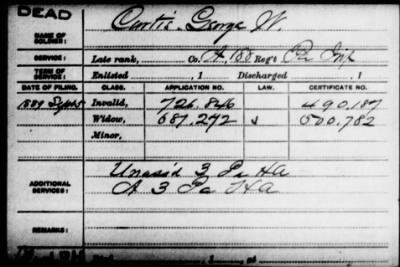 DEAD
NAME OF SOLDIER: Curtis, George W.
SERVICE: Late rank, Co. A, 188 Reg't Pa Inf
TERM OF SERVICE: Enlisted , 1 Discharged , 1
DATE OF FILING. CLASS. APPLICATION NO. LAW. CERTIFICATE NO.
1889 Sept 5 Invalid, 726.846 490,187
Widow, 687.292 500,782
Minor,
ADDITIONAL SERVICES: Unass'd 3 Pa HA
A 3 Pa HA
REMARKS: